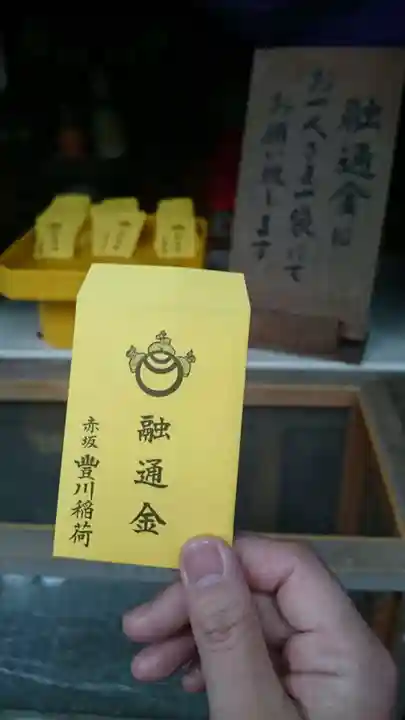 融通金は
お一人さま一袋にて
お願い致します
融通金
赤坂 豐川稲荷